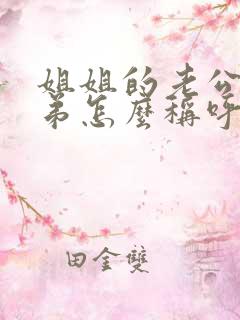 姐姐的老公
弟怎麼稱呼
田金雙